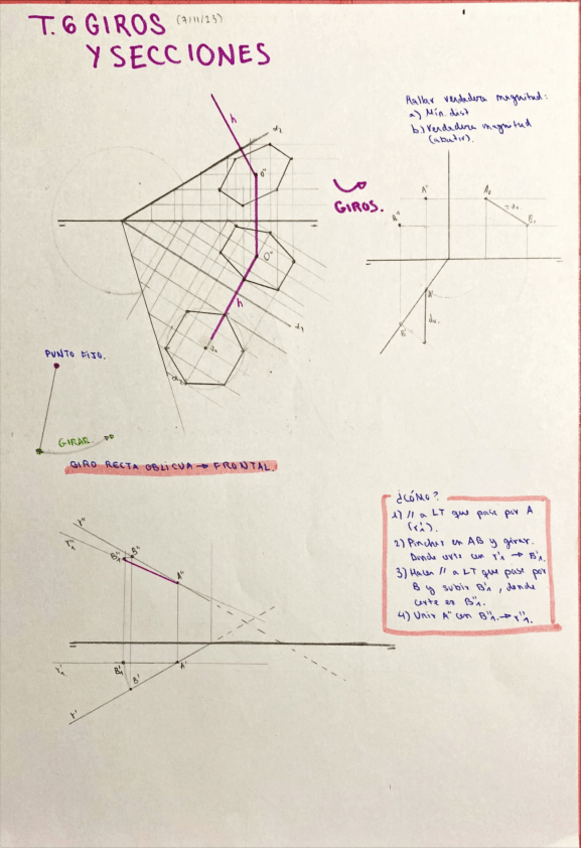 T.6 GIROS (7/11/23)
Y SECCIONES
Hallar verdadera magnitud:
a) Mín. dist
b) Verdadera magnitud
(abatir).
h
α₂
O"
GIROS.
A"
B"
A₀
B₀
O'
h
A'
B'
d₀
α₁
PUNTO FIJO.
GIRAR.
GIRO RECTA OBLICUA → FRONTAL.
¿CÓMO?
1) // a LT que pase por A
(r'₁).
2) Pinchar en AB y girar.
Donde corte con r'₁ → B'₁.
3) Hacer // a LT que pase por
B y subir B'₁, donde
corte es B"₁.
4) Unir A" con B"₁ → r"₁.
r"
r"₁
B"₁
B"
A"
r'₁
B'₁
A'
B'
r'